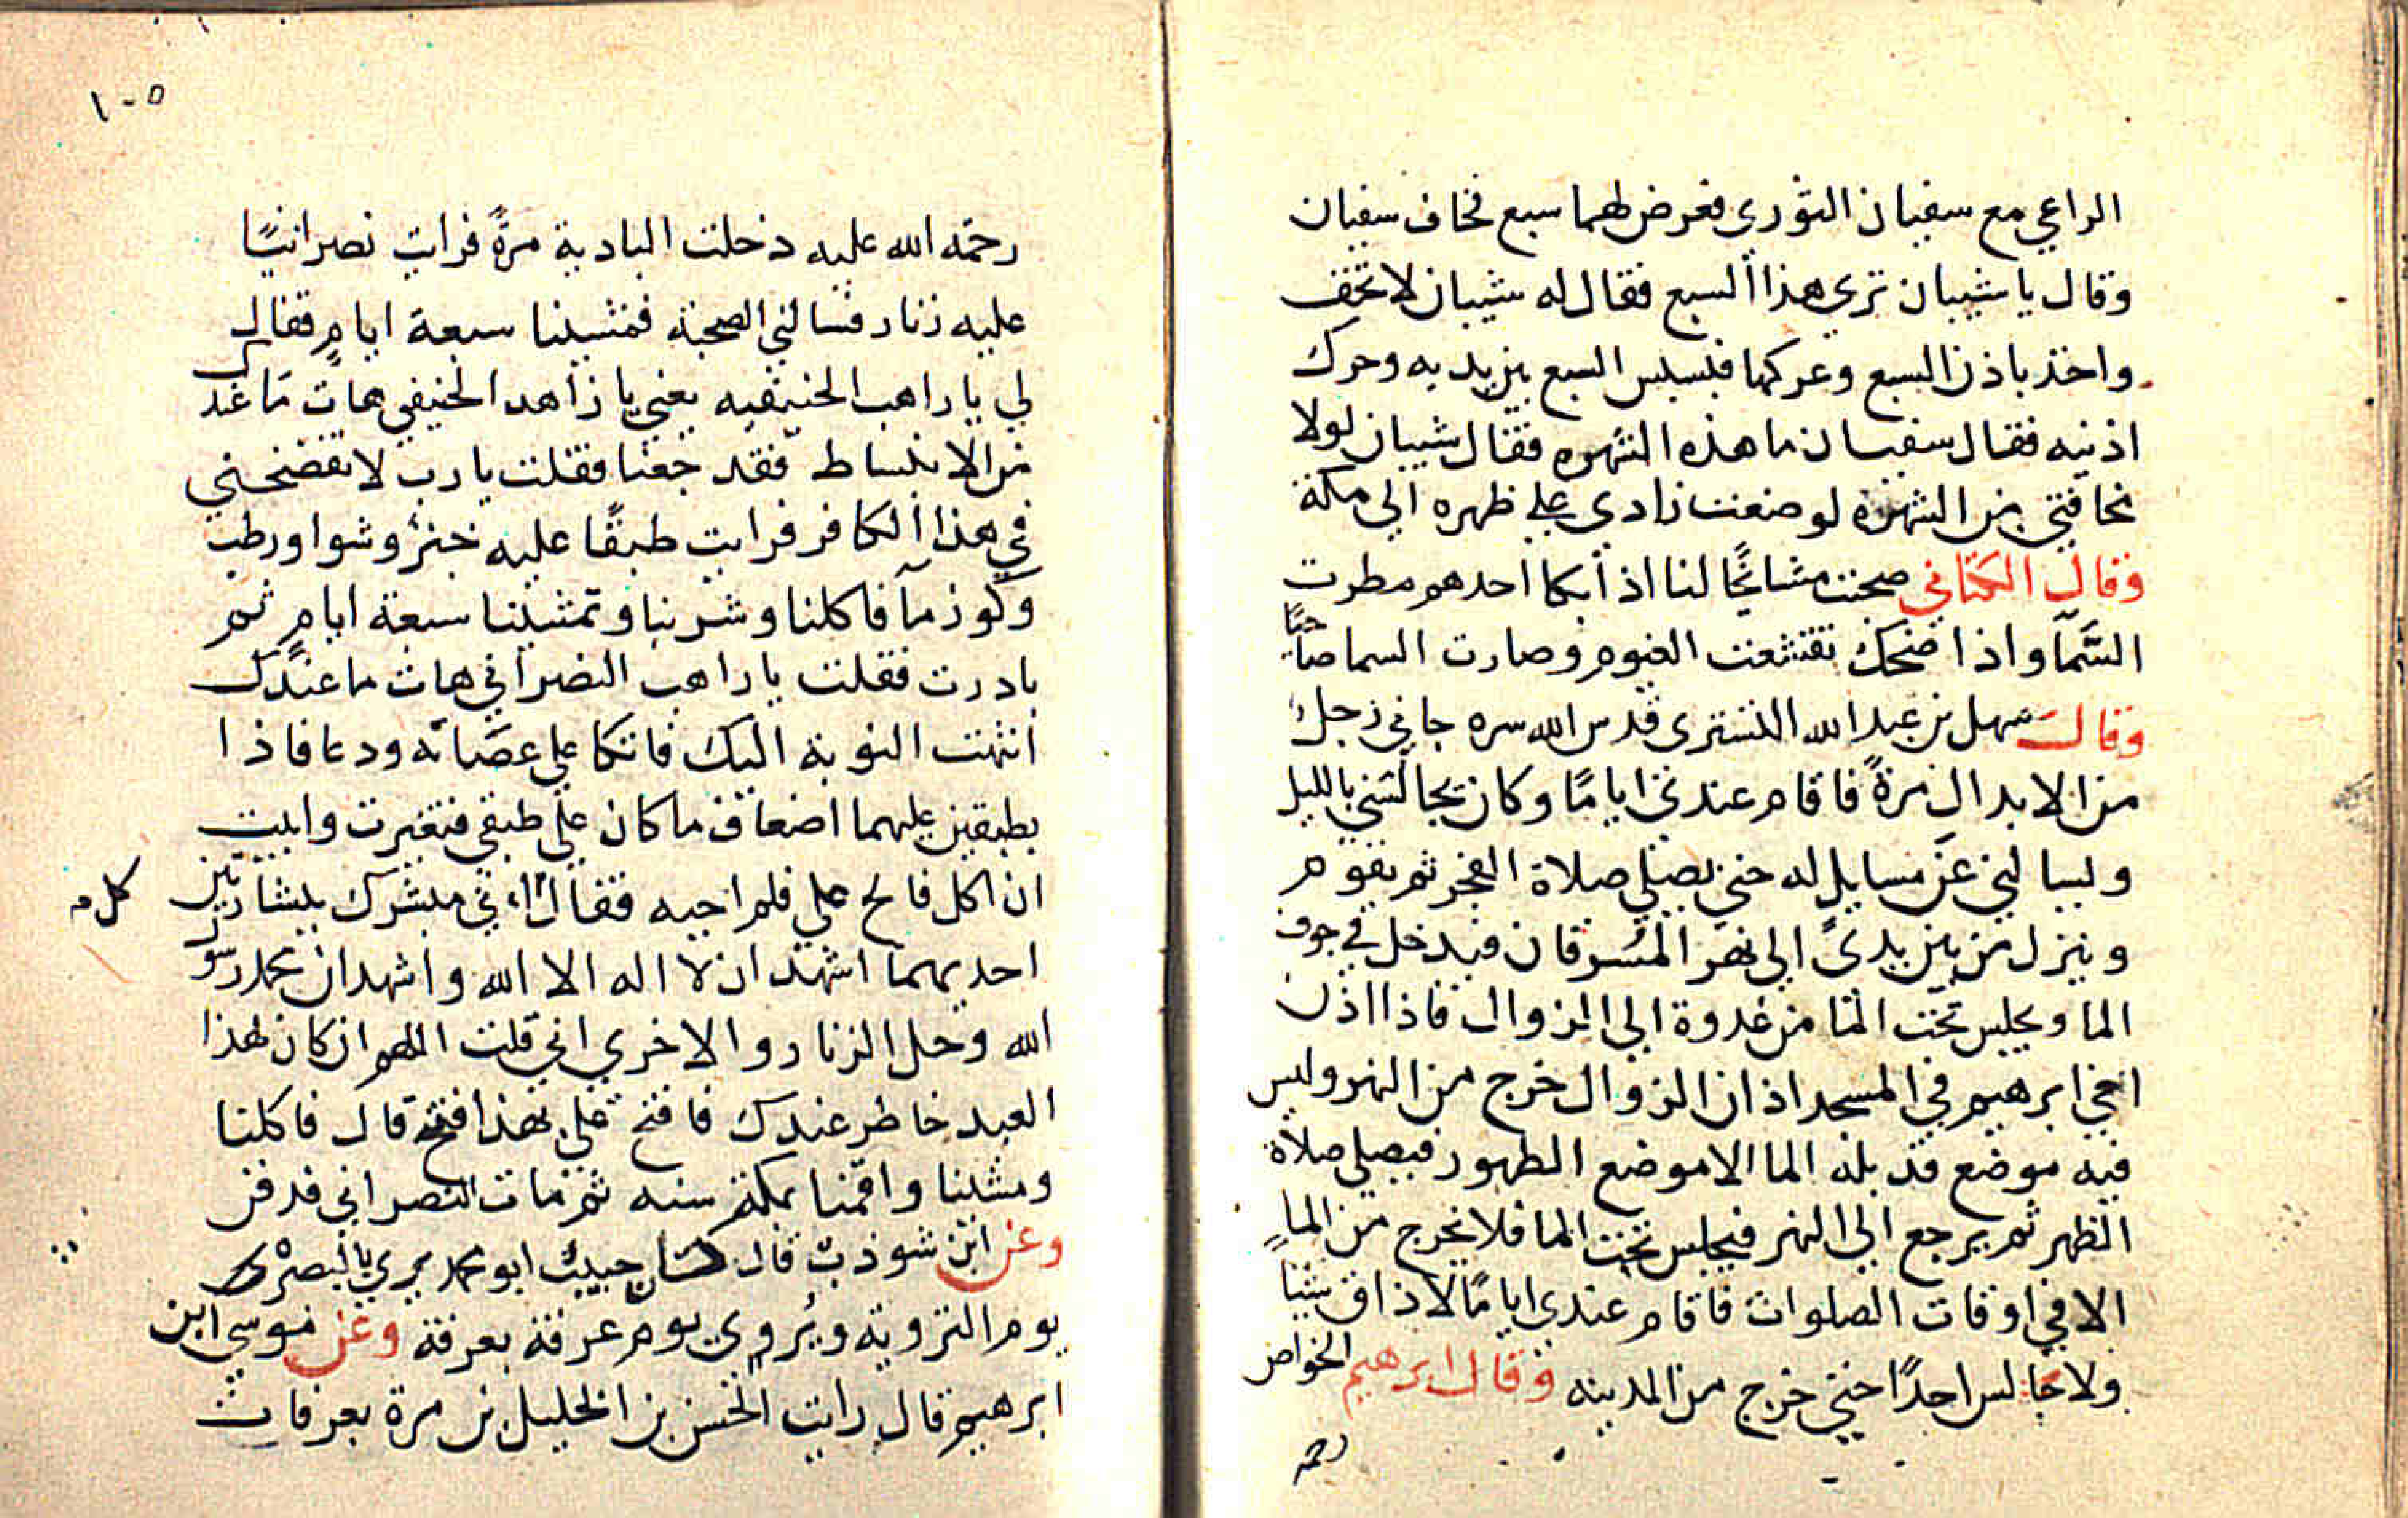 الراعي مع سفيان الثوري فعرض لهما سبع فخاف سفيان
وقال يا شيبان تري هذا السبع فقال له شيبان لا تخف
واخذ باذن السبع وعركها فبسبس السبع بين يديه وحرك
اذنيه فقال سفيان ما هذه الشهره فقال شيبان لولا
مخافتي من الشهرة لوضعت زادي علي ظهره الي مكة
وقال الكتاني صحبت مشايخًا لنا اذا بكا احدهم مطرت
السّمآ واذا ضحك تقشعت الغيوم وصارت السما صاحيًا
وقال سهل بن عبد الله التستري قدس الله سره جاني رجل
من الابدال مرةً فاقام عندي ايامًا وكان يجالسني بالليل
ويسالني عن مسايل له حتي يصلي صلاة الفجر ثم يقوم
وينزل من بين يديّ الي نهر المسرقان فيدخل في جوف
الما ويجلس تحت الما من غدوة الي الزوال فاذا اذن
اخي ابرهيم في المسجد اذان الزوال خرج من النهر وليس
فيه موضع قد بله الما الا موضع الطهور فيصلي صلاة
الظهر ثم يرجع الي النهر فيجلس تحت الما فلا يخرج من الما
الا في اوقات الصلوات فاقام عندي ايامًا لا ذاق شيا
ولا جالس احدًا حتي خرج من المدينه وقال ابرهيم الخواص
رحمه
١٠٥
رحمه الله عليه دخلت البادية مرةً فرايت نصرانيًا
عليه زنار فسالني الصحبة فمشينا سبعة ايام فقال
لي يا راهب الحنيفيه يعني يا زاهد الحنيفي هات ما عندك
من الانبساط فقد جعنا فقلت يا رب لا تفضحني
في هذا الكافر فرايت طبقًا عليه خبز وشوا ورطب
وكوز مآ فاكلنا وشربنا وتمشينا سبعة ايام ثم
بادرت فقلت يا راهب النصراني هات ما عندك
انتهت النوبة اليك فاتكا علي عصاته ودعا فاذا
بطبقين عليهما اضعاف ما كان علي طبقي فتغيرت وابيت
ان اكل فالح علي فلم اجبه فقال اني مبشرك ببشارتين
كل م
احديهما اشهد ان لا اله الا الله واشهد ان محمد رسول
الله وحل الزنار والاخري اني قلت اللهم ان كان لهذا
العبد خاطر عندك فافتح علي بهذا ففتح قال فاكلنا
ومشينا واقمنا بمكة سنه ثم مات النصراني فدفن
وعن ابن شوذب قال كان حبيب ابو محمد يري بالبصرة
يوم التروية ويُروي يوم عرفة بعرفة وعن موسي ابن
ابرهيم قال رايت الحسن بن الخليل بن مرة بعرفات